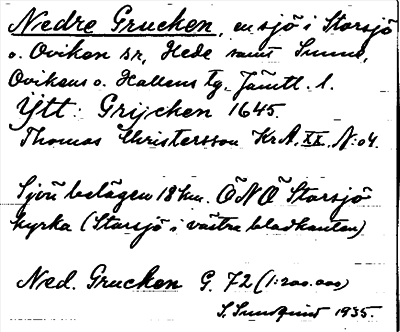 Nedre Grucken, en sjö i Storsjö
o. Oviken sn, Hede samt Sunne,
Ovikens o. Hallens tg. Jämtl. l.
Ytt: Grijcken 1645.
Thomas Christersson KrA. XX. N:o 4.
Sjön belägen 18 km. ÖNÖ Storsjö
kyrka (Storsjö i västra bladkanten)
Ned. Grucken G. 72 (1:200.000)
S. Sundquist 1935.